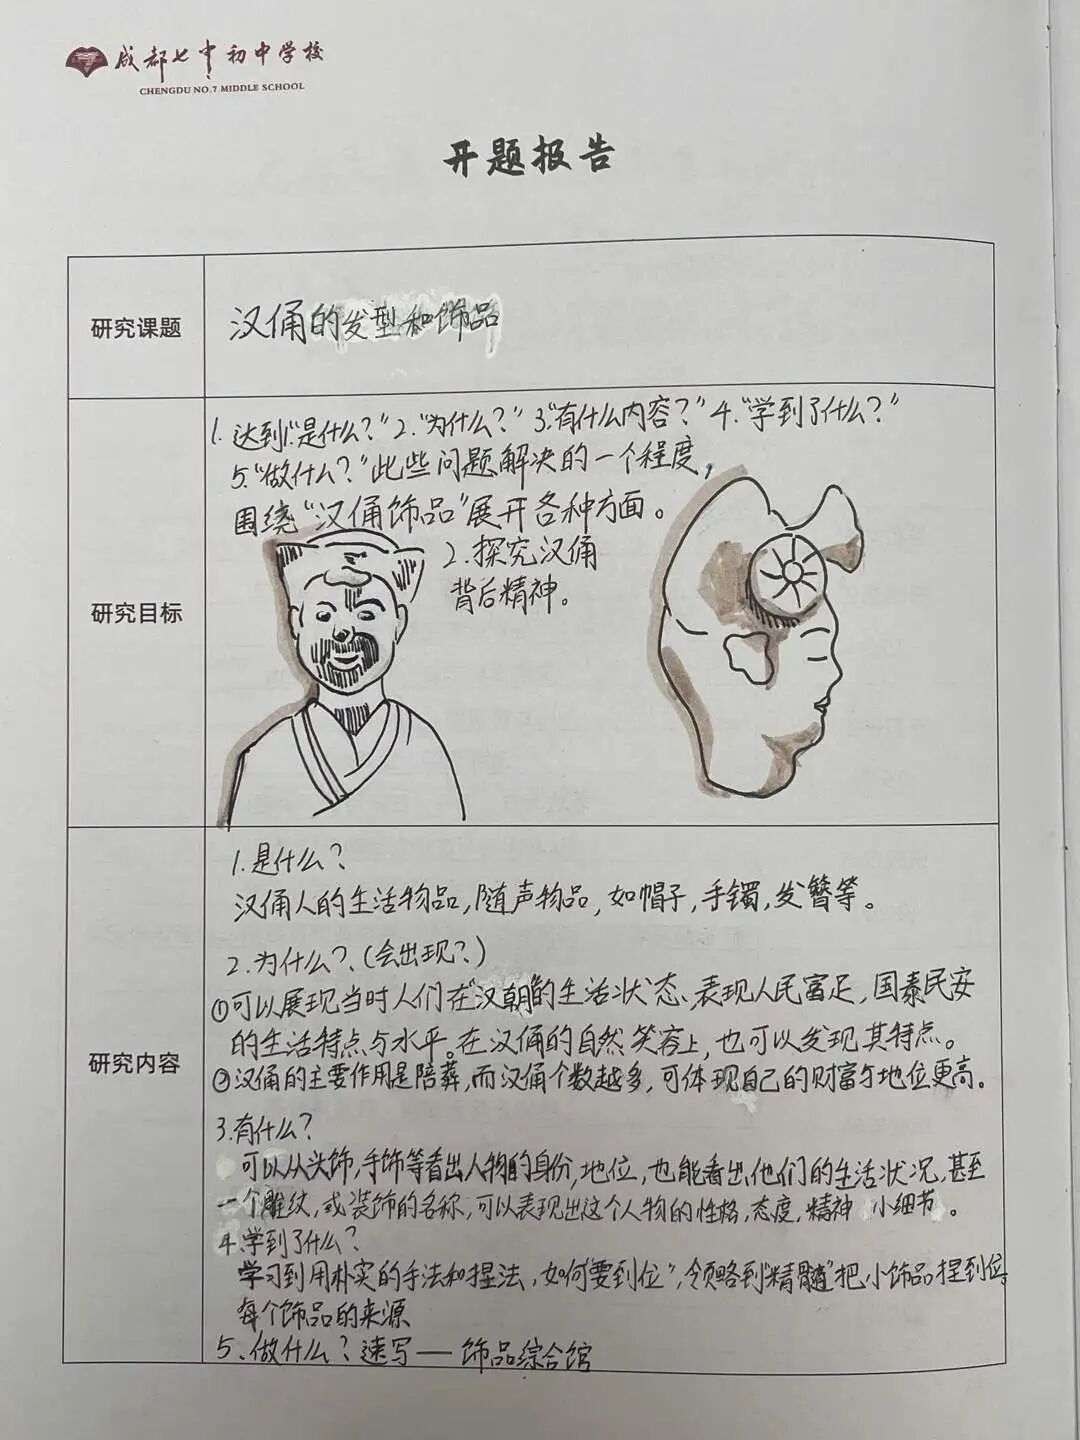 成都七中初中学校
CHENGDU NO.7 MIDDLE SCHOOL
开题报告
研究课题
汉俑的发型和饰品
研究目标
1. 达到1."是什么?"2."为什么?"3."有什么内容?"4."学到了什么?"
5."做什么?"此些问题解决的一个程度,
围绕"汉俑饰品"展开各种方面。
2.探究汉俑
背后精神。
研究内容
1.是什么?
汉俑人的生活物品,随声物品,如帽子,手镯,发簪等。
2.为什么?、(会出现?)
①可以展现当时人们在"汉朝"的生活状态、表现人民富足,国泰民安
的生活特点与水平。在汉俑的自然笑容上,也可以发现其特点。
②汉俑的主要作用是陪葬,而汉俑个数越多,可体现自己的财富与地位更高。
3.有什么?
可以从头饰,手饰等看出人物的身份,地位,也能看出他们的生活状况,甚至
一个雕纹,或装饰的名称,可以表现出这个人物的性格,态度,精神 小细节。
4.学到了什么?
学习到用朴实的手法和捏法,如何"要到位",领略到"精髓"把小饰品捏到位。
每个饰品的来源
5、做什么?速写——饰品综合馆